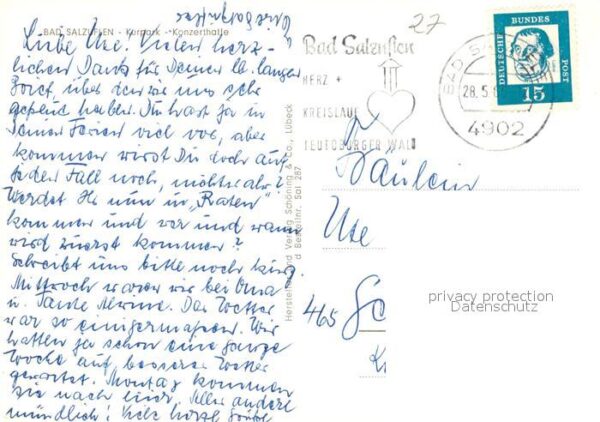 BAD SALZUFLEN - Kurpark - Konzerthalle
Liebe Ute. Vielen herz-
lichen Dank für Deinen lb. langen
Brief über den wir uns sehr
gefreut haben. Du hast ja in
Deinen Ferien viel vor, aber
kommen wirst Du doch auf
jeden Fall noch, nicht wahr?
Werdet Ihr nun in „Raten"
kommen und wer und wann
wird zuerst kommen?
Schreibt uns bitte noch kurz.
Mittwoch waren wir bei Oma
u. Tante . Das Wetter
war so einigermaßen. Wir
hatten ja schon eine ganze
Woche auf besseres Wetter
gewartet. Montag kommen
sie nach hier. Alles andere
mündlich! Viele herzl. Grüße
Herstellung und Verlag Schöning & Co., Lübeck
Bestellnr. Sal 287
27
Bad Salzuflen
HERZ +
KREISLAUF
TEUTOBURGER WALD
BAD
28.5.
4902
DEUTSCHE
BUNDES
POST
15
Fräulein
Ute
465 Ge
privacy protection
Datenschutz